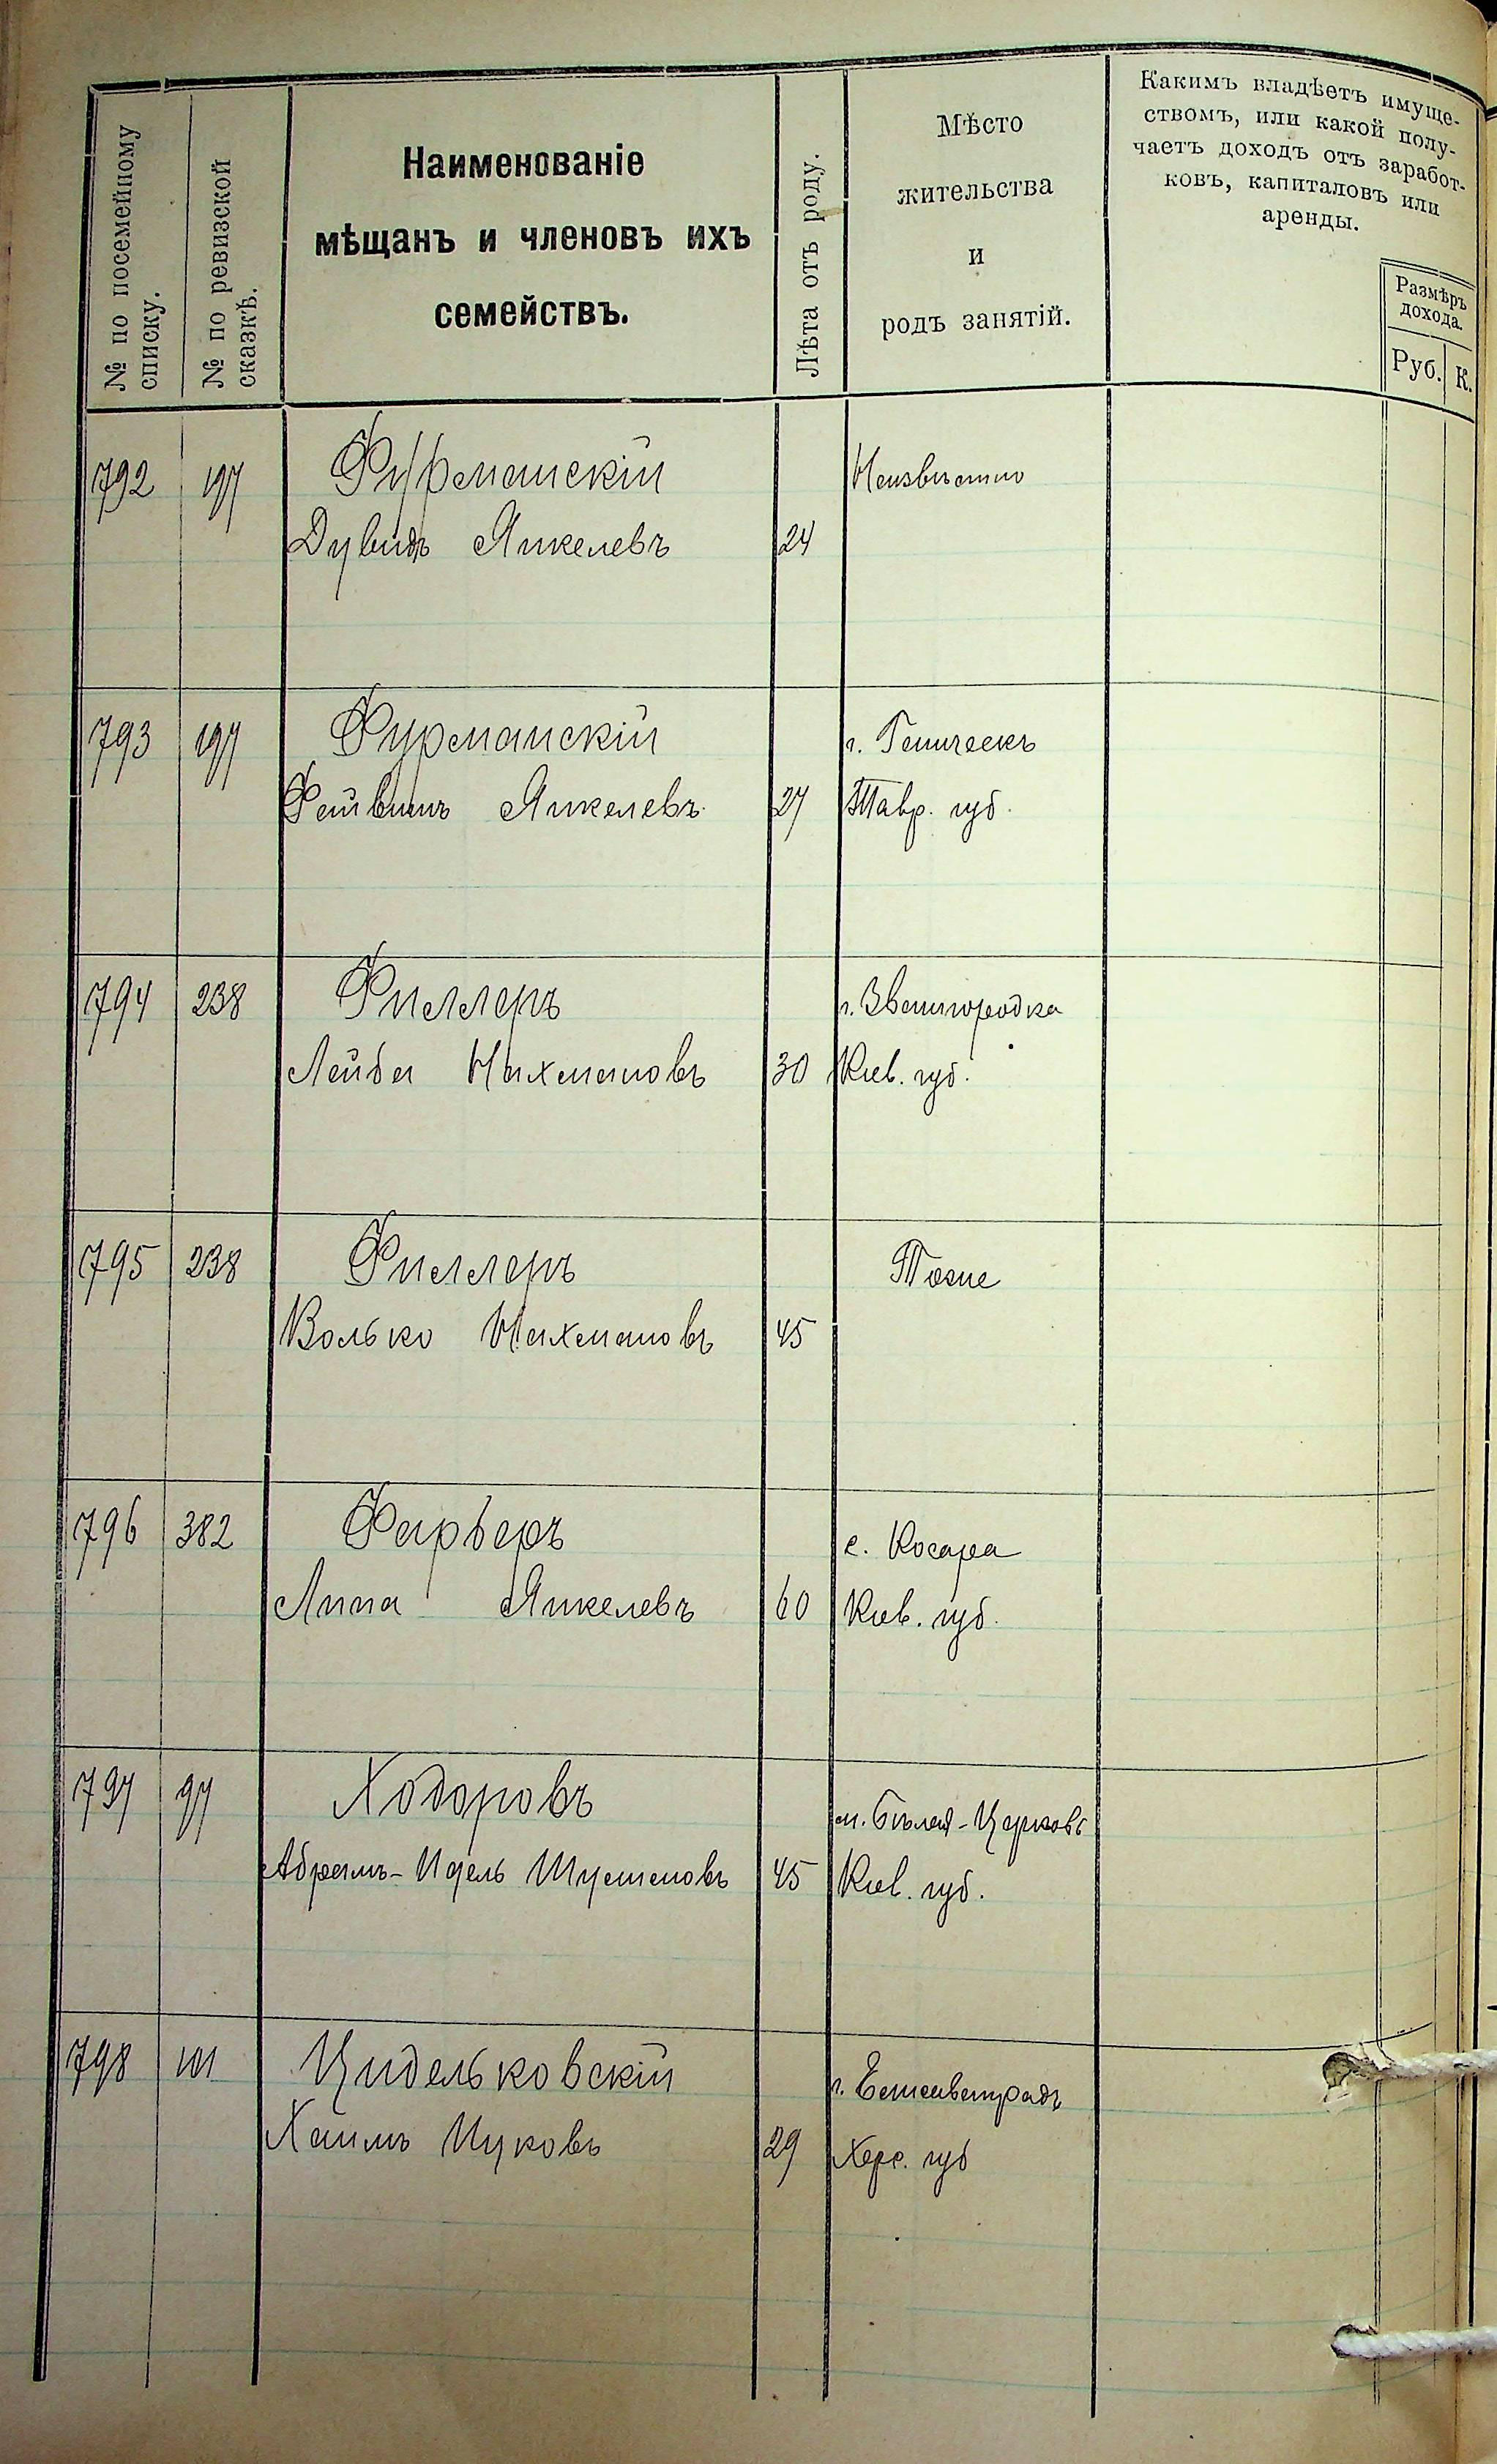 № по посемейному
списку.
№ по ревизской
сказкѣ.
Наименованіе
мѣщанъ и членовъ ихъ
семействъ.
Лѣта отъ роду.
Мѣсто
жительства
и
родъ занятій.
Какимъ владѣетъ имуще-
ствомъ, или какой полу-
чаетъ доходъ отъ заработ-
ковъ, капиталовъ или
аренды.
Размѣръ
дохода.
Руб. К.
792 197 Фурманскій Неизвѣстно
Дувидъ Янкелевъ 24
793 197 Фурманскій г. Геническъ
Фейвишъ Янкелевъ 27 Тавр. губ.
794 238 Филлеръ г. Звенигородка
Лейба Нахмановъ 30 Кіев. губ.
795 238 Филлеръ Тоже
Волько Нахмановъ 45
796 382 Фарберъ с. Косара
Липа Янкелевъ 60 Кіев. губ.
797 97 Ходоровъ м. Бѣлая-Церковь
Абрамъ-Идель 45 Кіев. губ.
798 101 Цидельковскій г. Елисаветградъ
Хаимъ Ицковъ 29 Херс. губ